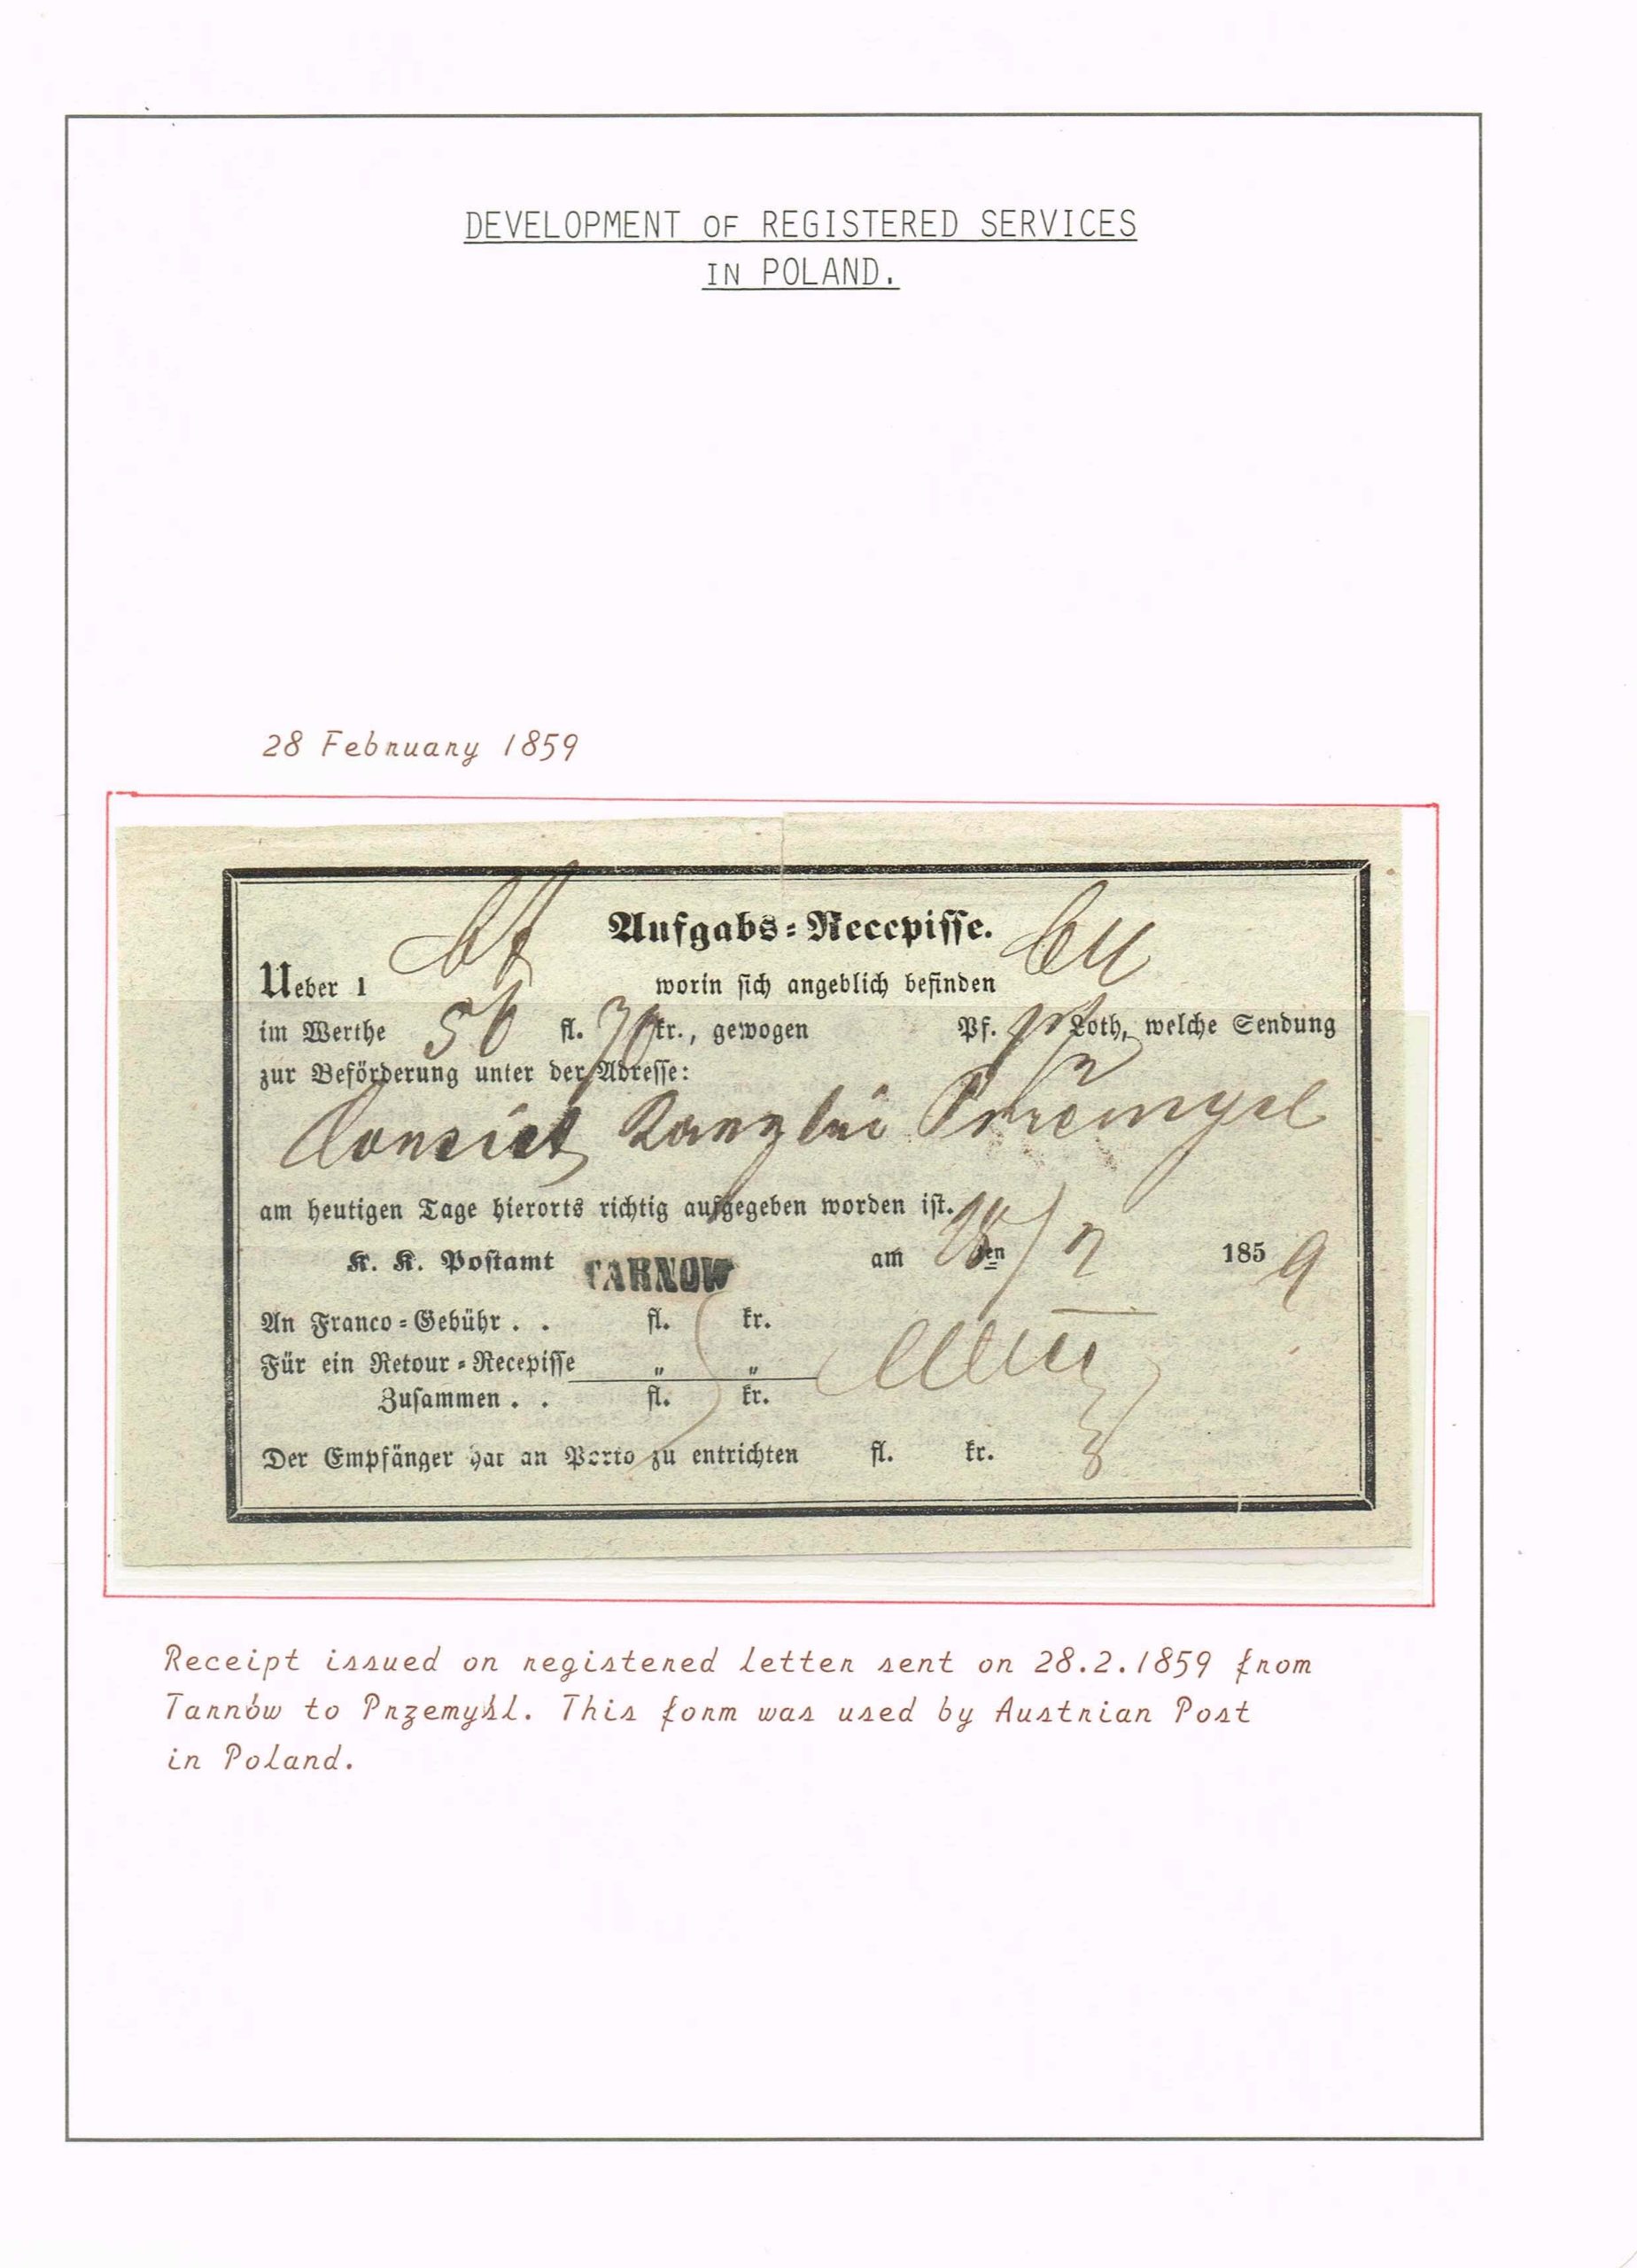 DEVELOPMENT OF REGISTERED SERVICES
IN POLAND.
28 February 1859
Aufgabs=Recepisse.
Ueber 1 worin sich angeblich befinden
im Werthe 56 fl. kr., gewogen Pf. Loth, welche Sendung
zur Beförderung unter der Adresse:
Kanzlei
am heutigen Tage hierorts richtig aufgegeben worden ist.
K. K. Postamt TARNOW am 28 ten / 2 1859
An Franco=Gebühr . . fl. kr.
Für ein Retour=Recepisse " "
Zusammen . . fl. kr.
Der Empfänger hat an Porto zu entrichten fl. kr.
Receipt issued on registered letter sent on 28.2.1859 from
Tarnów to Przemyśl. This form was used by Austrian Post
in Poland.